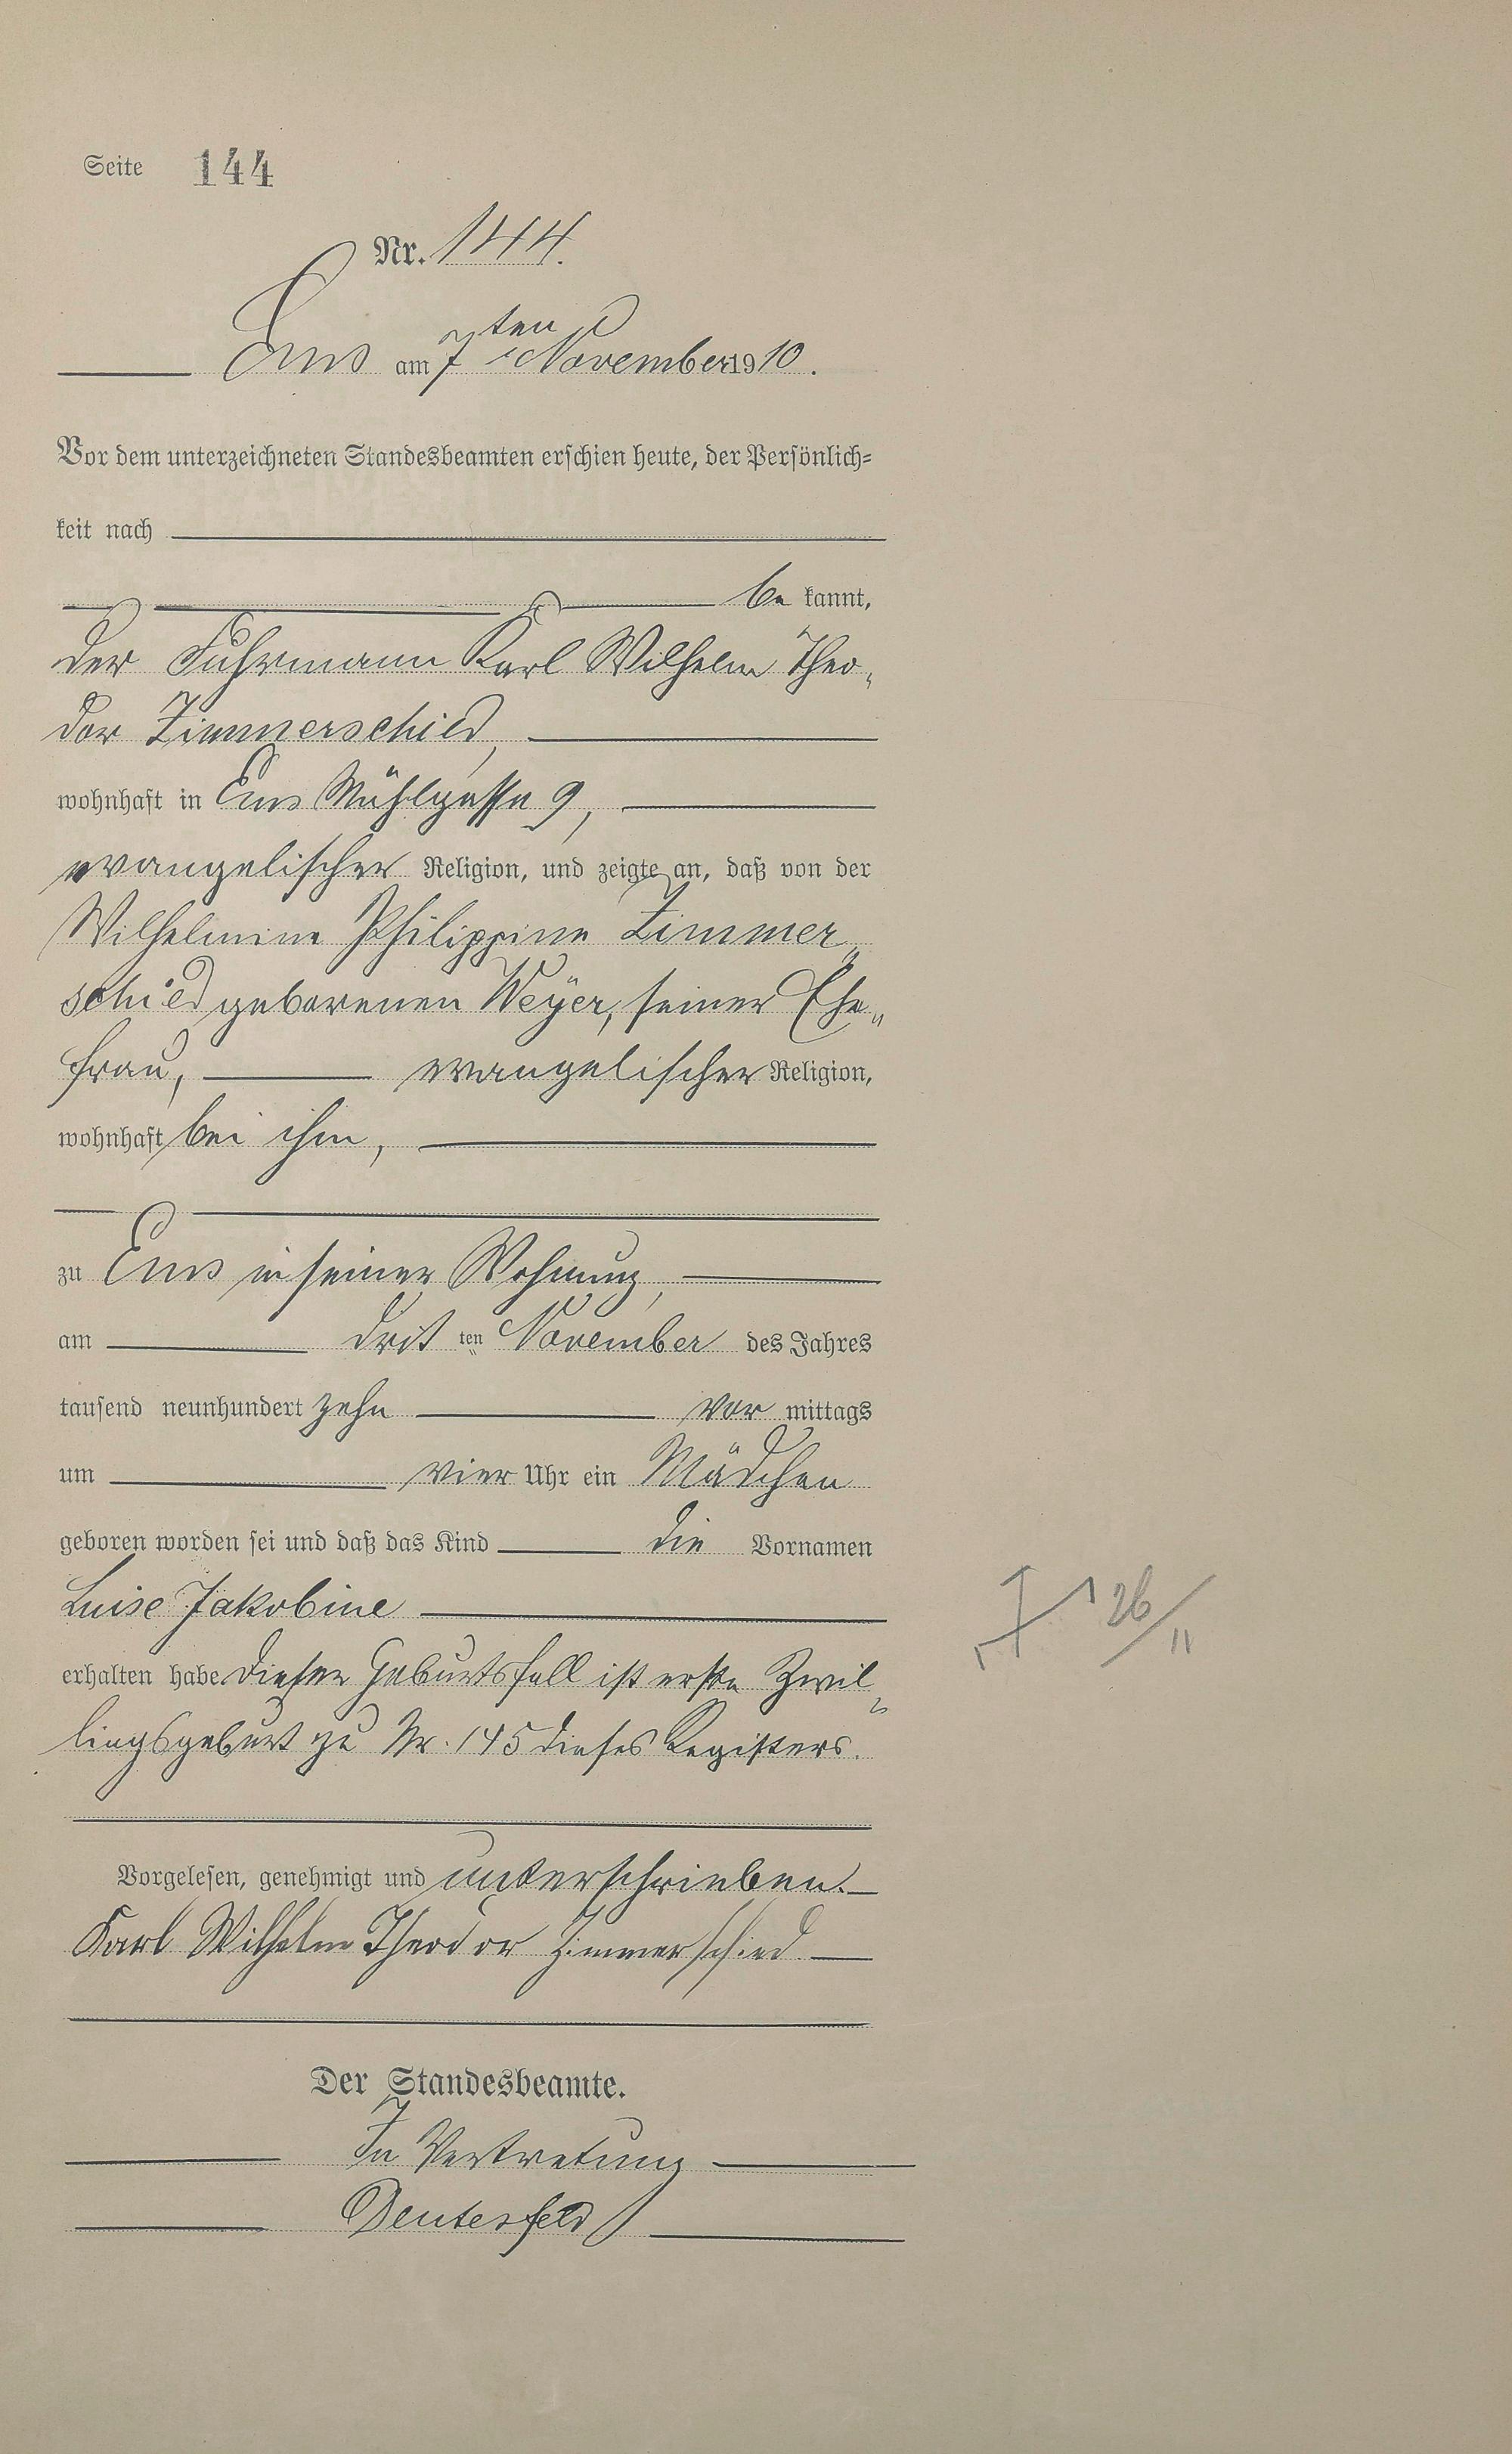 Seite 144
Nr. 144.
Ems am 7ten November 1910.
Vor dem unterzeichneten Standesbeamten erschien heute, der Persönlich=
keit nach
be kannt,
der Fuhrmann Karl Wilhelm Theo-
dor Zimmerschied,
wohnhaft in Ems Mühlgasse 9,
evangelischer Religion, und zeigte an, daß von der
Wilhelmine Philippine Zimmer„
schied geborenen Weyer, seiner Ehe„
frau, evangelischer Religion,
wohnhaft bei ihm,
zu Ems in seiner Wohnung,
am drit ten November des Jahres
tausend neunhundert zehn vor mittags
um vier Uhr ein Mädchen
geboren worden sei und daß das Kind die Vornamen
Luise Jakobine
26/11
erhalten habe. Dieser Geburtsfall ist erste Zwil„
lingsgeburt zu Nr. 145 dieses Registers.
Vorgelesen, genehmigt und unterschrieben.
Karl Wilhelm Theodor Zimmerschied
Der Standesbeamte.
In Vertretung
Deutesfeld